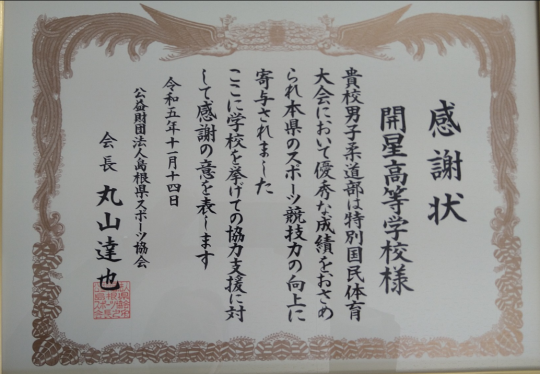 感謝状
開星高等学校様
貴校男子柔道部は特別国民体育
大会において優秀な成績をおさめ
られ本県のスポーツ競技力の向上に
寄与されました
ここに学校を挙げての協力支援に対
して感謝の意を表します
令和五年十一月十四日
公益財団法人島根県スポーツ協会
会長 丸山達也